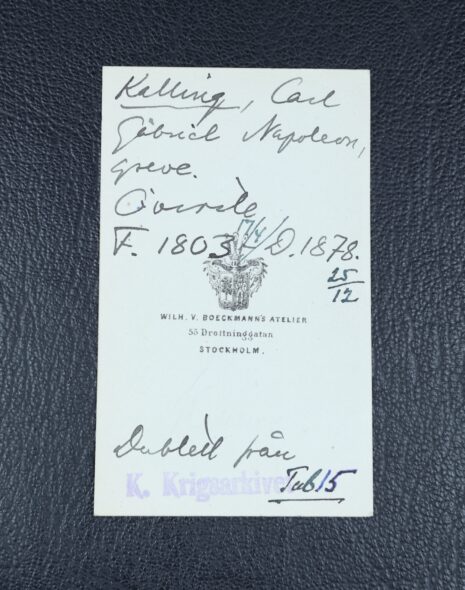 Kalling, Carl
Gabriel Napoleon,
greve.
Överste
F. 1803 17/4 D. 1878.
25/12
WILH. V. BOECKMANN'S ATELIER
53 Drottninggatan
STOCKHOLM.
Dublett från
K. Krigsarkivet Tab 15